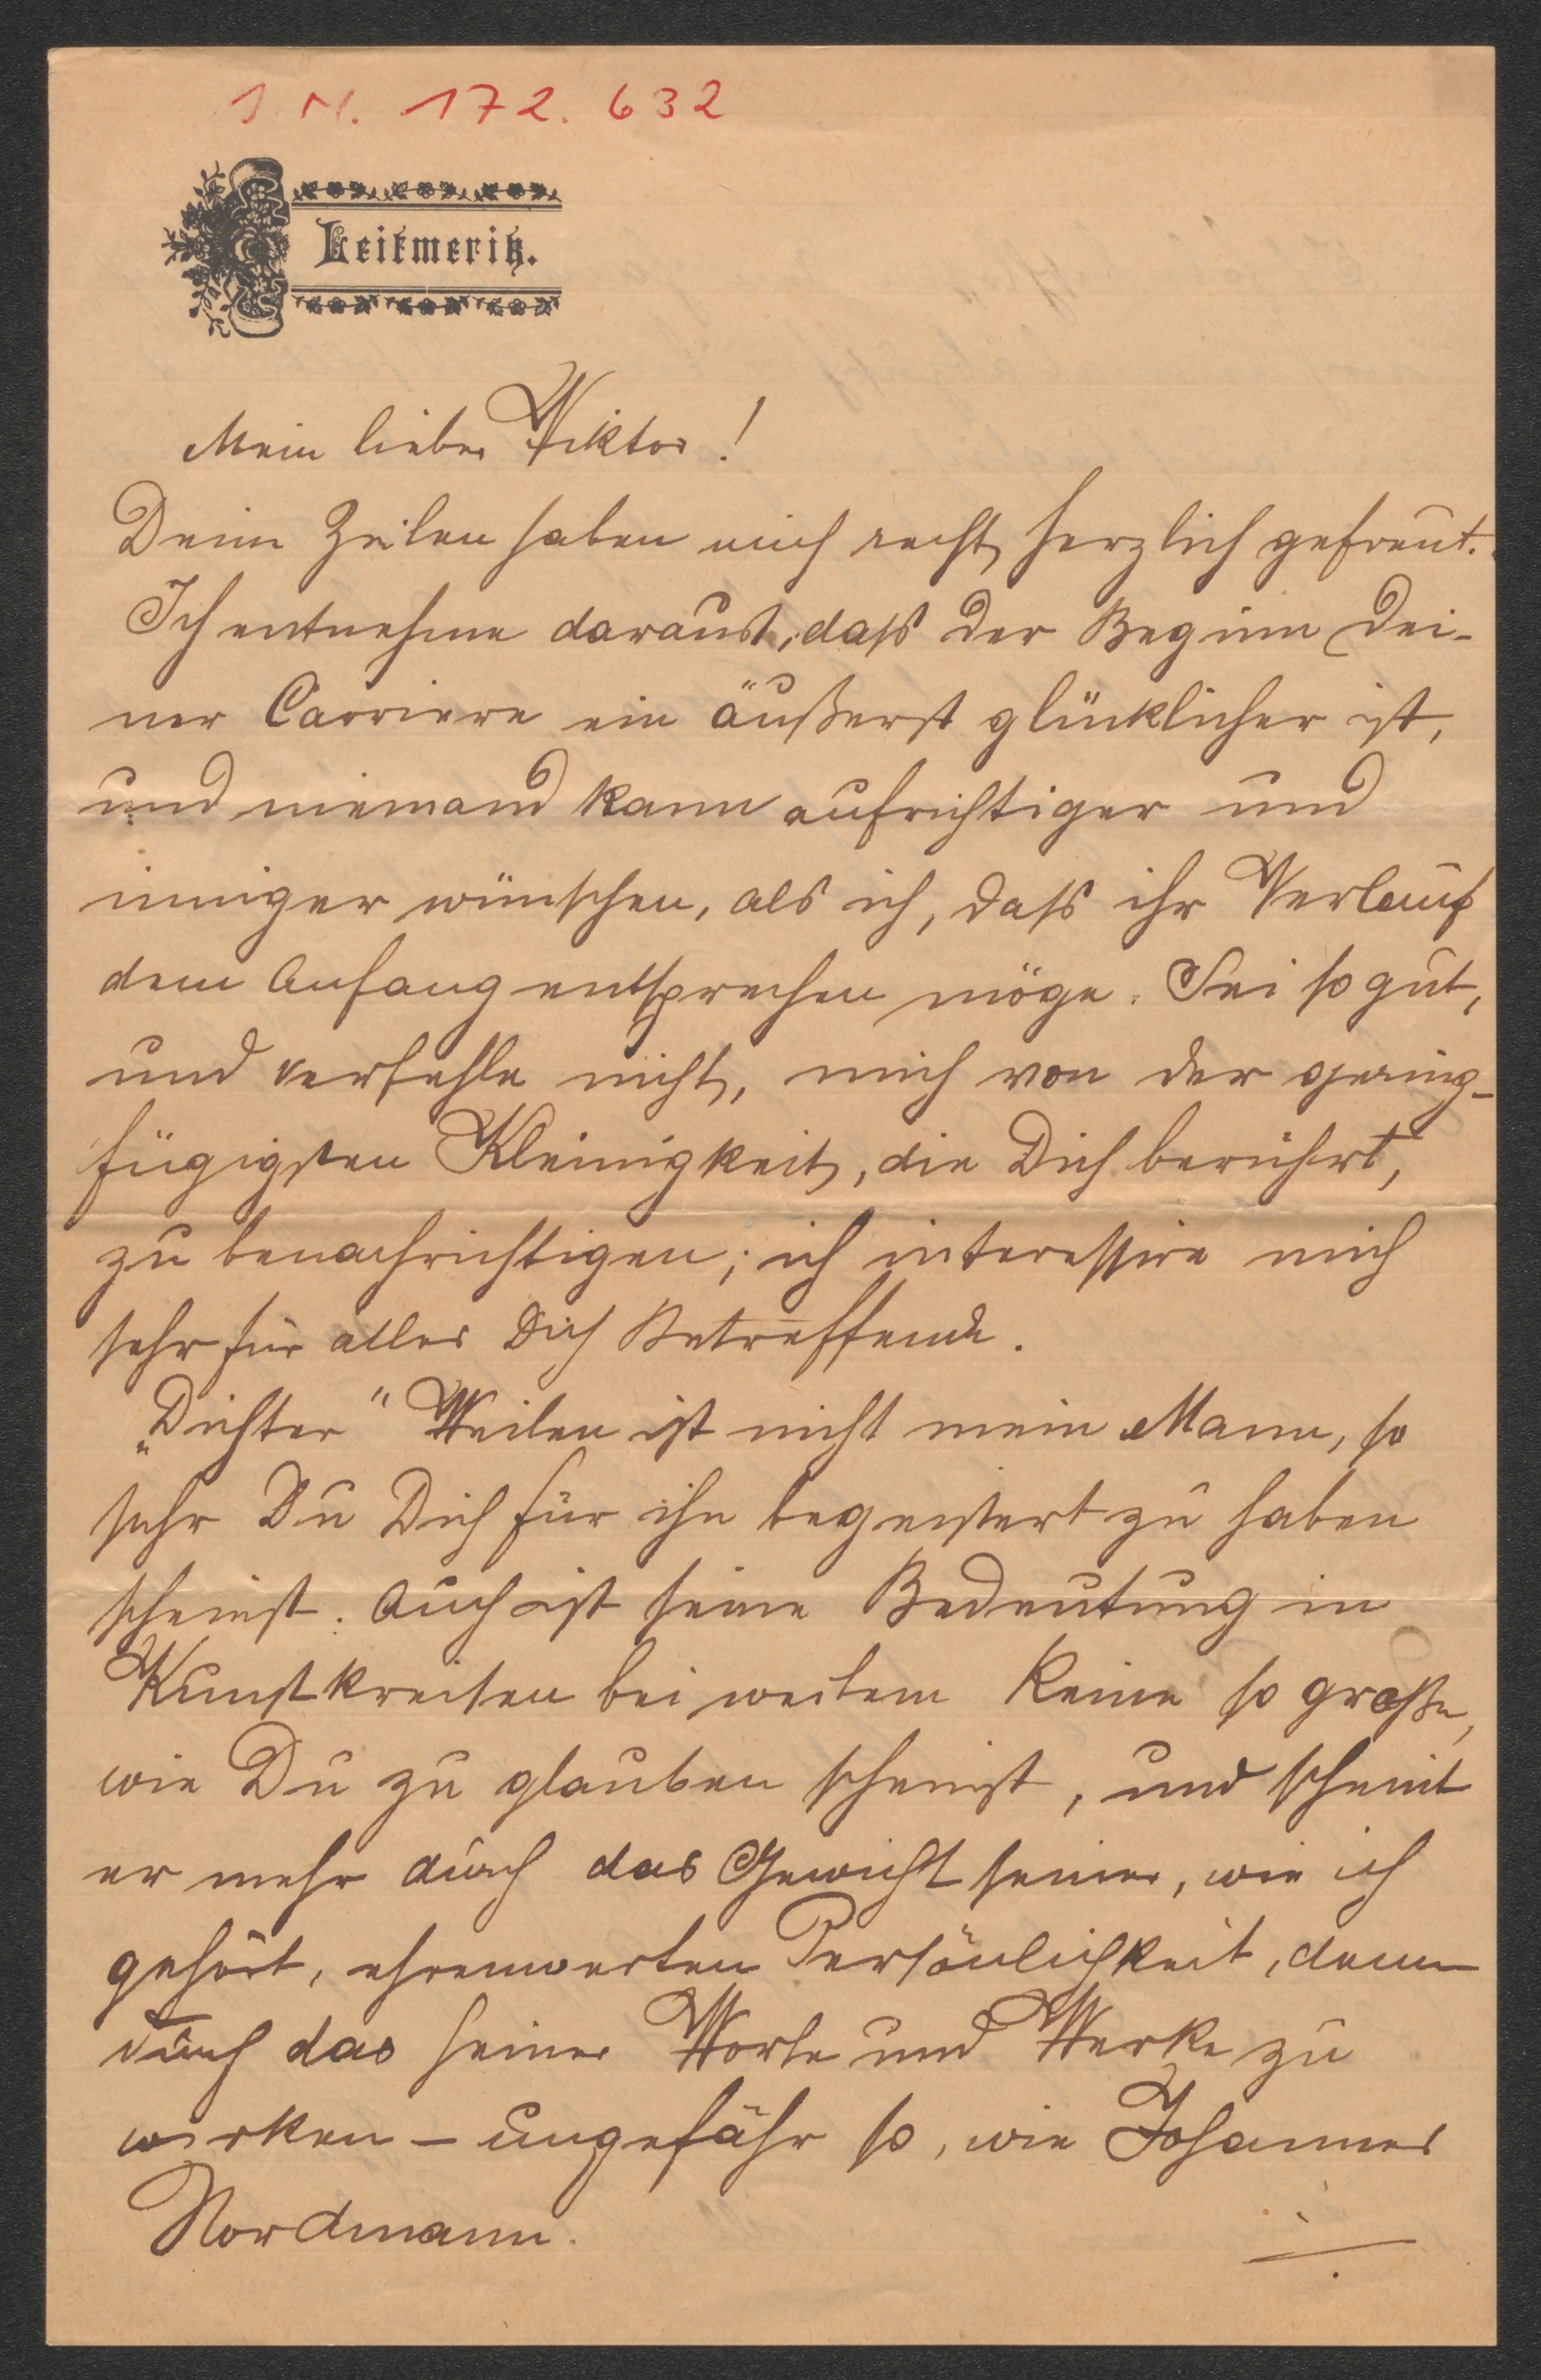 J. N. 172.632
Leitmeritz.
Mein lieber Viktor!
Deine Zeilen haben mich recht herzlich gefreut.
Ich entnehme daraus, dass der Beginn Dei-
ner Carriere ein äußerst glücklicher ist,
und niemand kann aufrichtiger und
inniger wünschen, als ich, dass ihr Verlauf
dem Anfang entsprechen möge. Sei so gut,
und verfehle nicht, mich von der gering-
fügigsten Kleinigkeit, die Dich berührt,
zu benachrichtigen; ich interessire mich
sehr für alles Dich Betreffende.
„Dichter" Weilen ist nicht mein Mann, so
sehr Du Dich für ihn begeistert zu haben
scheinst. Auch ist seine Bedeutung in
Kunstkreisen bei weitem keine so große,
wie Du zu glauben scheinst, und scheint
er mehr durch das Gewicht seiner, wie ich
gehört, ehrenwerten Persönlichkeit, denn
durch das seiner Worte und Werke zu
wirken – ungefähr so, wie Johannes
Nordmann.